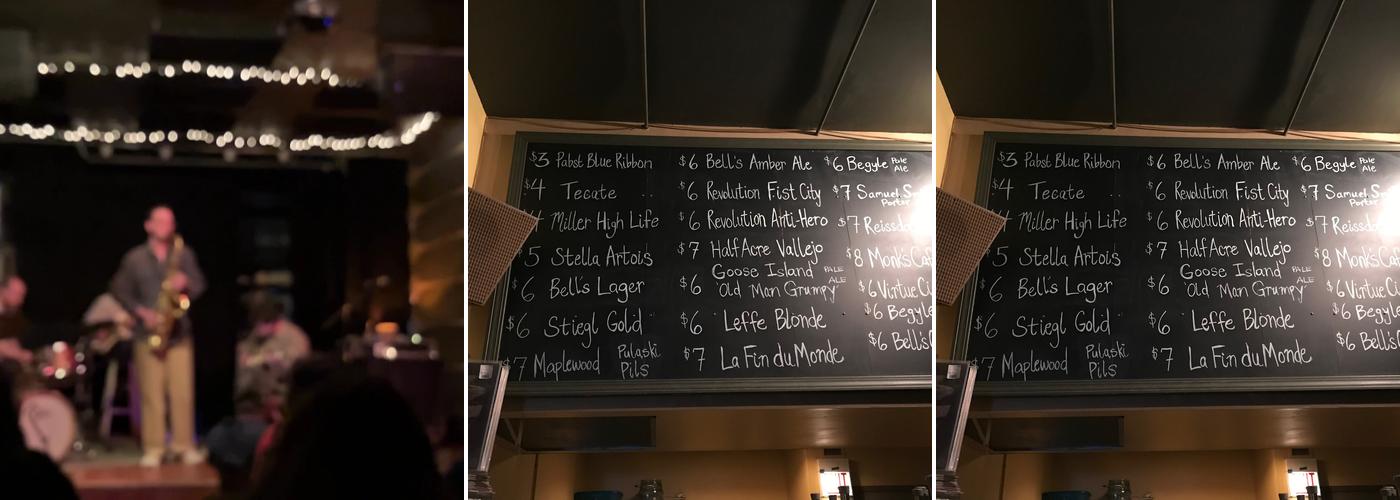 $3 Pabst Blue Ribbon
$4 Tecate
Miller High Life
$5 Stella Artois
$6 Bell's Lager
$6 Stiegl Gold
$7 Maplewood Pulaski Pils
$6 Bell's Amber Ale
$6 Revolution Fist City
$6 Revolution Anti-Hero
$7 Half Acre Vallejo
$6 Goose Island PALE ALE
'Old Man Grumpy'
$6 Leffe Blonde
$7 La Fin du Monde
$6 Begyle Pale Ale
$7 Samuel
Porter
$7
$8 Monk's
$6 Virtue
$6 Begyle
$6 Bell's
$3 Pabst Blue Ribbon
$4 Tecate
Miller High Life
$5 Stella Artois
$6 Bell's Lager
$6 Stiegl Gold
$7 Maplewood Pulaski Pils
$6 Bell's Amber Ale
$6 Revolution Fist City
$6 Revolution Anti-Hero
$7 Half Acre Vallejo
$6 Goose Island PALE ALE
'Old Man Grumpy'
$6 Leffe Blonde
$7 La Fin du Monde
$6 Begyle Pale Ale
$7 Samuel
Porter
$7
$8 Monk's
$6 Virtue
$6 Begyle
$6 Bell's